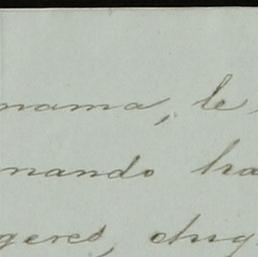 mama, le
nando ha
geres,